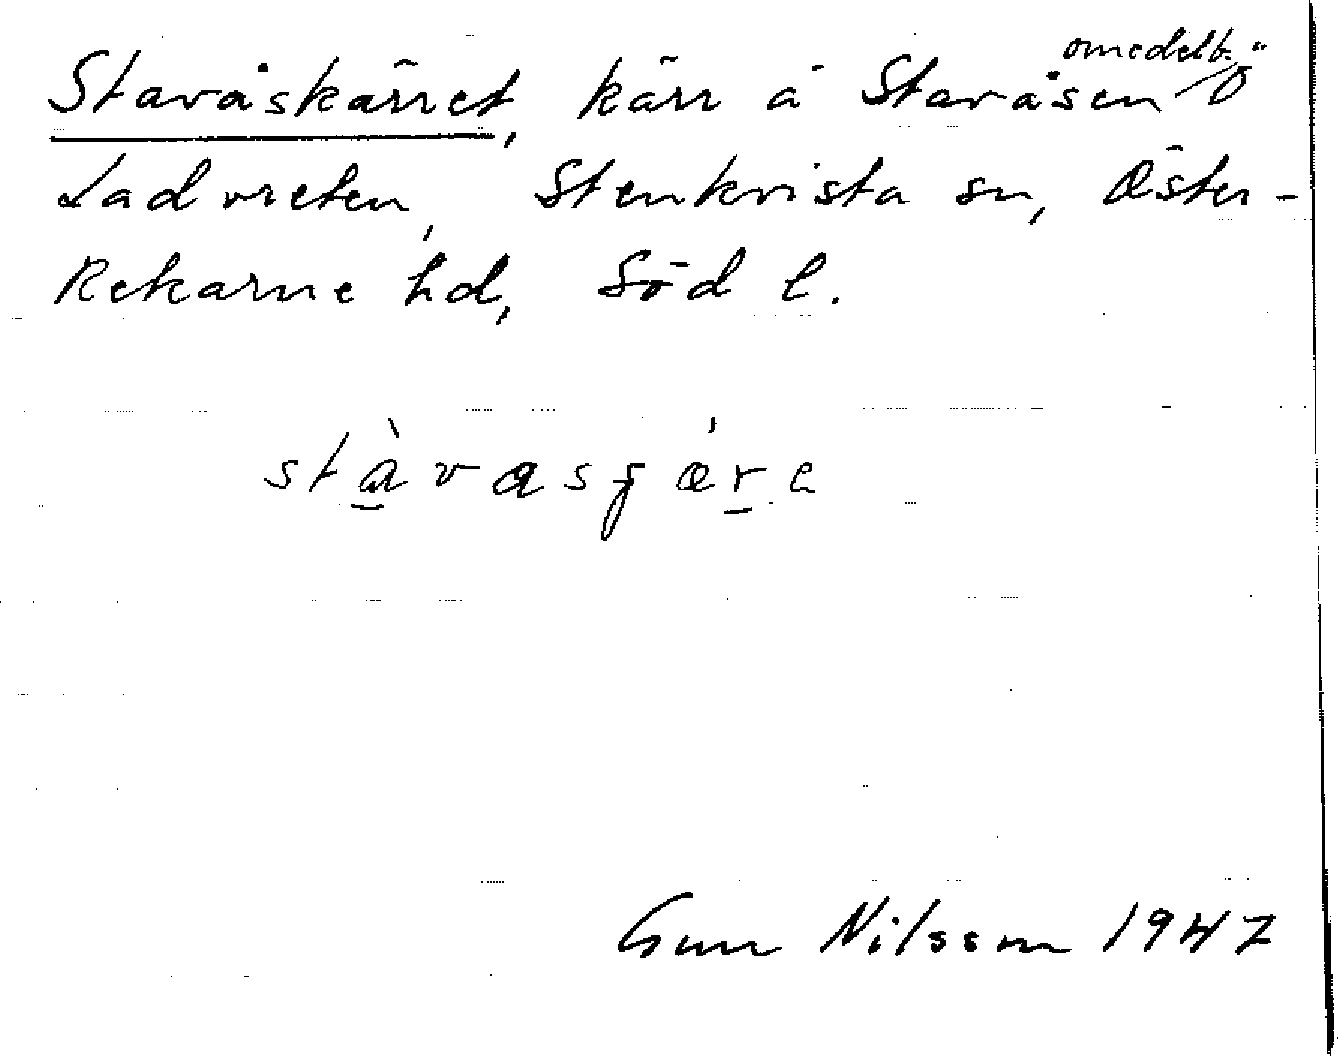 Staváskärret, kärr å Stavåsen omedelb. Ö
Ladvreten, Stenkvista sn, Öster-
Rekarne hd, Söd l.
stàvasʃǽre
Gun Nilsson 1947